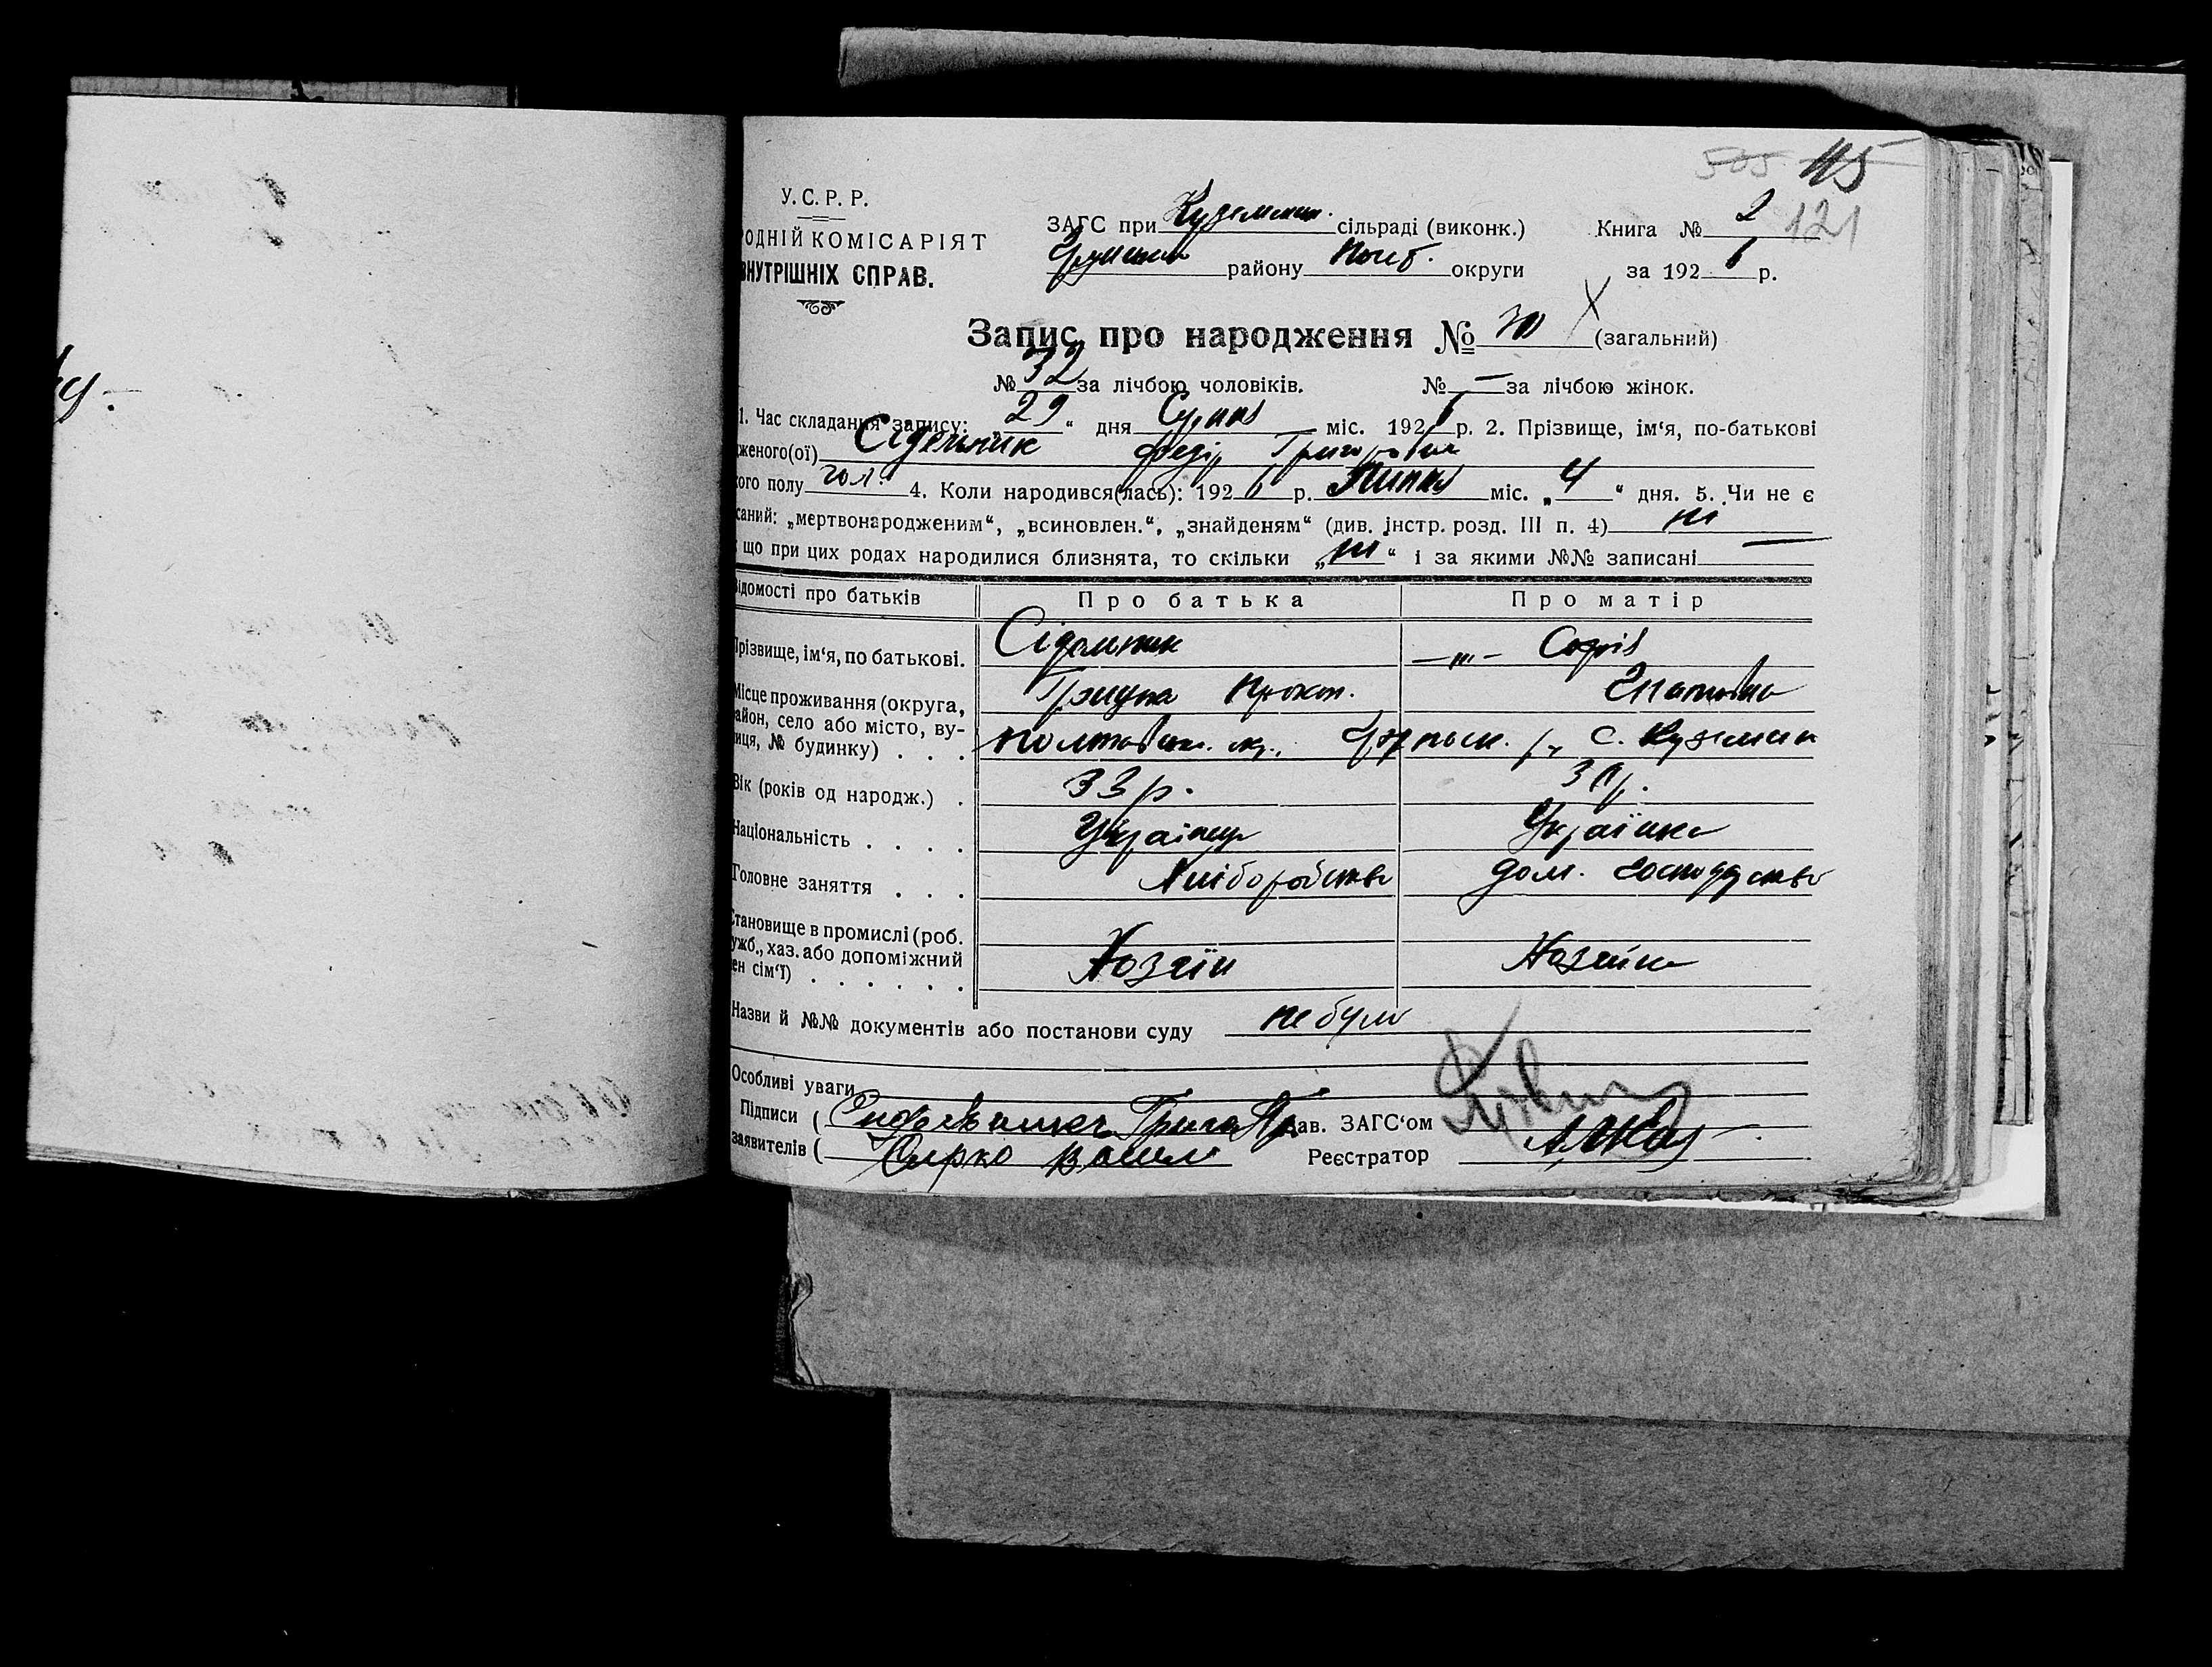 115
121
У. С. Р. Р.
РОДНІЙ КОМІСАРІЯТ
ВНУТРІШНІХ СПРАВ.
ЗАГС при Куземин. сільраді (виконк.) Книга № 2
району Полт. округи за 1926 р.
Запис про народження № (загальний)
№ 32 за лічбою чоловіків. № — за лічбою жінок.
1. Час складання запису: „29“ дня Серпня міс. 1926 р. 2. Прізвище, ім‘я, по-батькові
дженого(ої) Сідельник Федір Григорович
ого полу чол. 4. Коли народився(лась): 1926 р. Липня міс. „4“ дня. 5. Чи не є
саний: „мертвонародженим“, „всиновлен.“, „знайденям“ (див. інстр. розд. III п. 4) ні
що при цих родах народилися близнята, то скільки „ні“ і за якими №№ записані —
Відомості про батьків Про батька Про матір
Прізвище, ім‘я, по батькові. Сідельник —„— Софія
Грицько Прокоп. Гнатовна
Місце проживання (округа,
район, село або місто, ву-
лиця, № будинку) . . . Полтавськ. окр., р., с. Куземин
Вік (років од народж.) . 33 р.
Національність . . . . Українець Українка
Головне заняття . . . Хліборобство дом. господарство
Становище в промислі (роб.
ужб., хаз. або допоміжний
ен сім‘ї) . . . . . . Хозяїн Хозяйка
Назви й №№ документів або постанови суду не було
Особливі уваги
Підписи ( Григо Пр. Зав. ЗАГС‘ом
заявителів ( Реєстратор